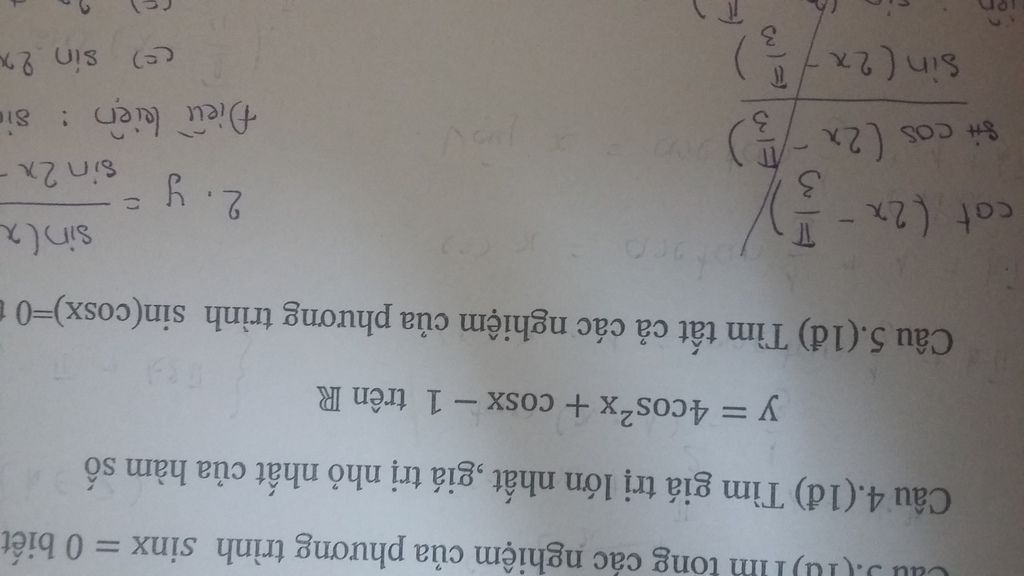 Câu 3.(1đ)Tìm tổng các nghiệm của phương trình sinx = 0 biết
Câu 4.(1đ) Tìm giá trị lớn nhất ,giá trị nhỏ nhất của hàm số
y = 4cos²x + cosx − 1 trên ℝ
Câu 5.(1đ) Tìm tất cả các nghiệm của phương trình sin(cosx)=0
cot (2x - π/3)
cos (2x - π/3)
sin (2x - π/3)
2. y = sin(x / sin 2x -
Điều kiện : si
(=) sin 2x